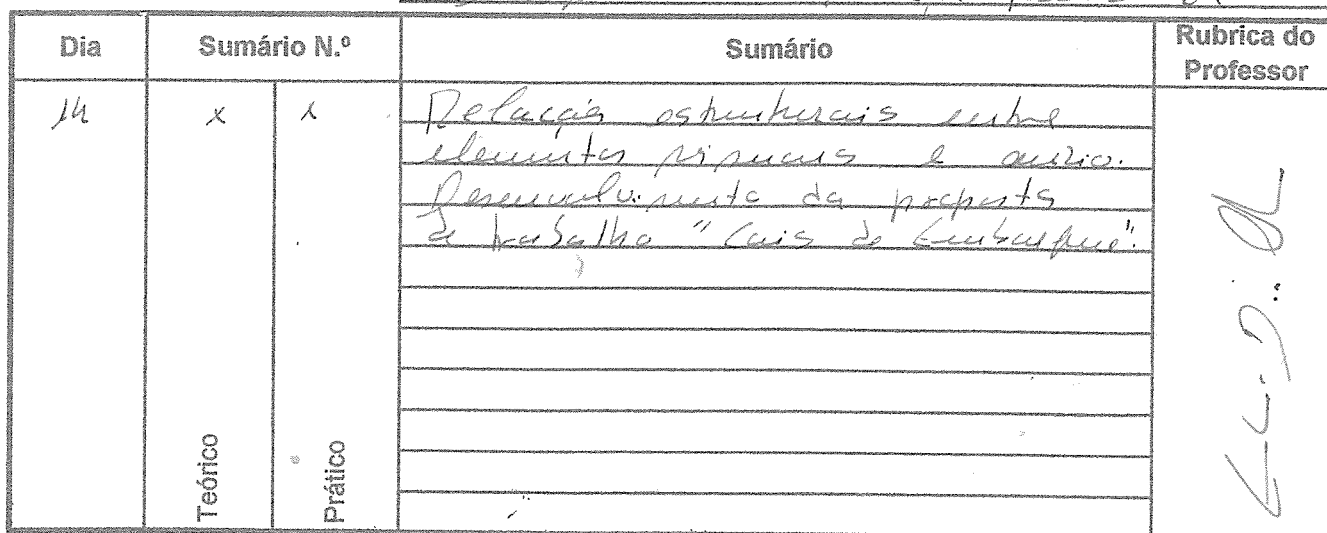 Dia Sumário N.º Sumário Rubrica do Professor
14 x x Relações estruturais entre
elementos visuais e áudio.
Desenvolvimento da proposta
de trabalho "Cais de Embarque".
Teórico Prático